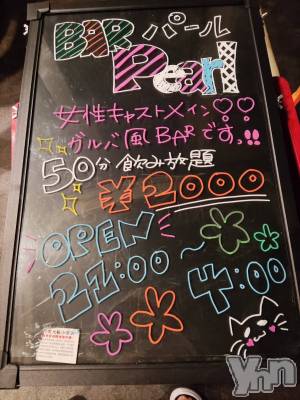 BAR パール
Pearl
女性キャストメイン♡♡
ガルバ風BARです!!
50分 飲み放題
¥2000
OPEN
21:00〜
4:00
Yhn